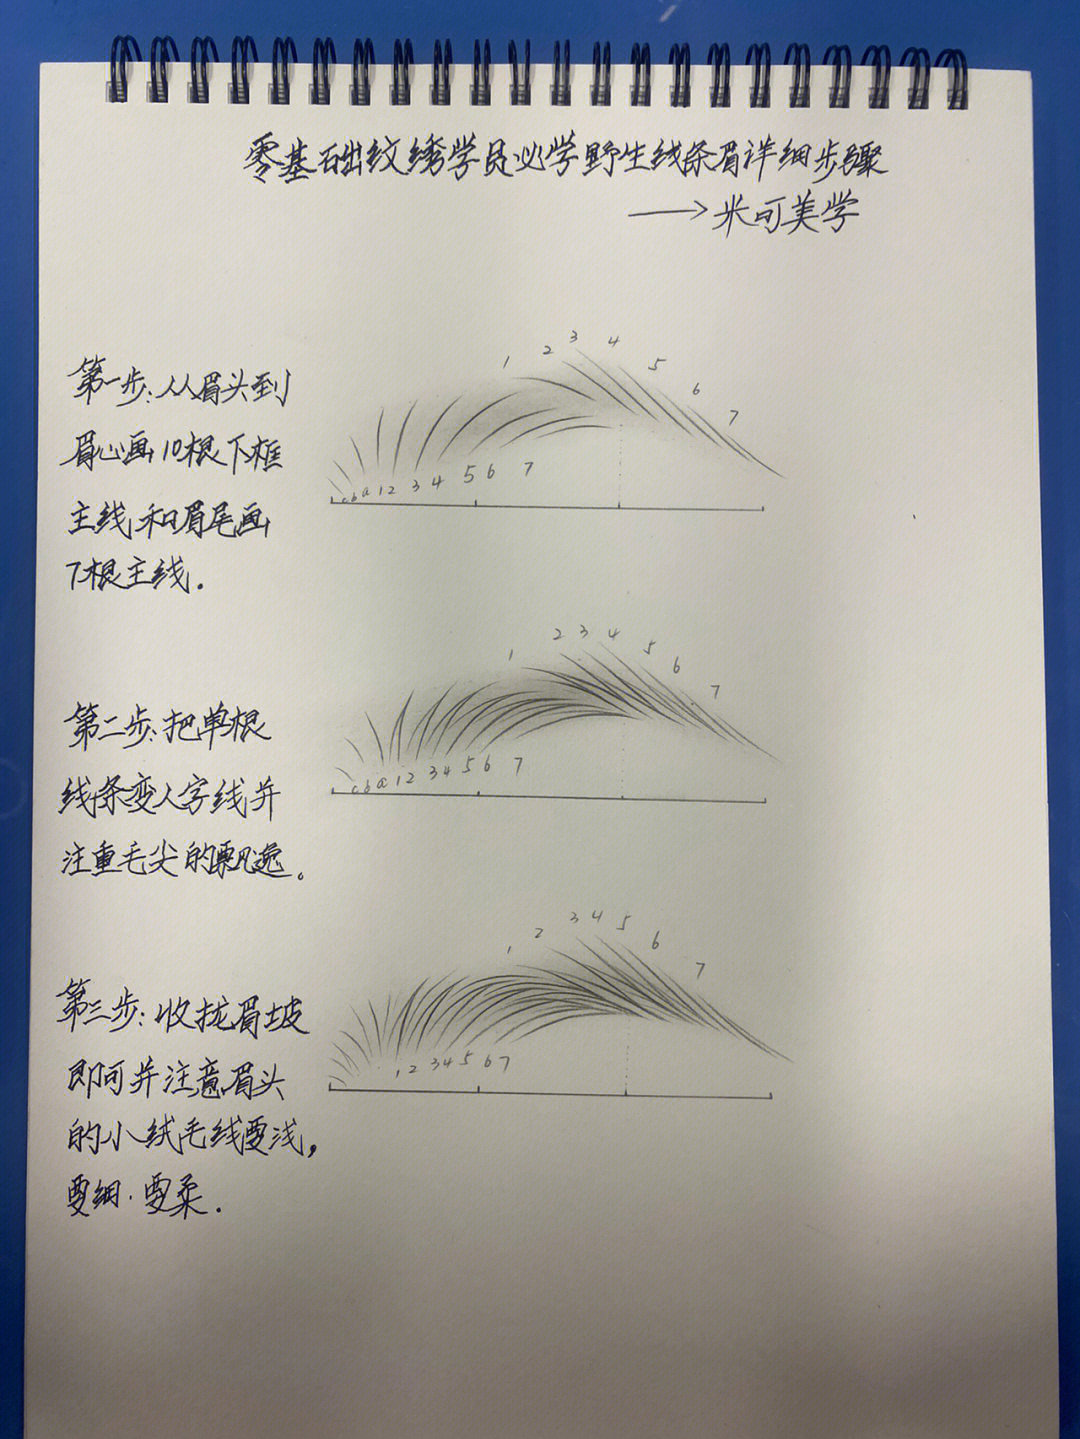 零基础纹绣学员必学野生线条眉详细步骤
→米可美学
1 2 3 4 5 6 7
第一步:从眉头到
眉心画10根下框
主线,和眉尾画
7根主线.
c b a 1 2 3 4 5 6 7
1 2 3 4 5 6 7
第二步:把单根
线条变人字线并
注重毛尖的飘逸。
c b a 1 2 3 4 5 6 7
1 2 3 4 5 6 7
第三步:收拢眉坡
即可并注意眉头
的小绒毛线要浅,
要细.要柔.
1 2 3 4 5 6 7